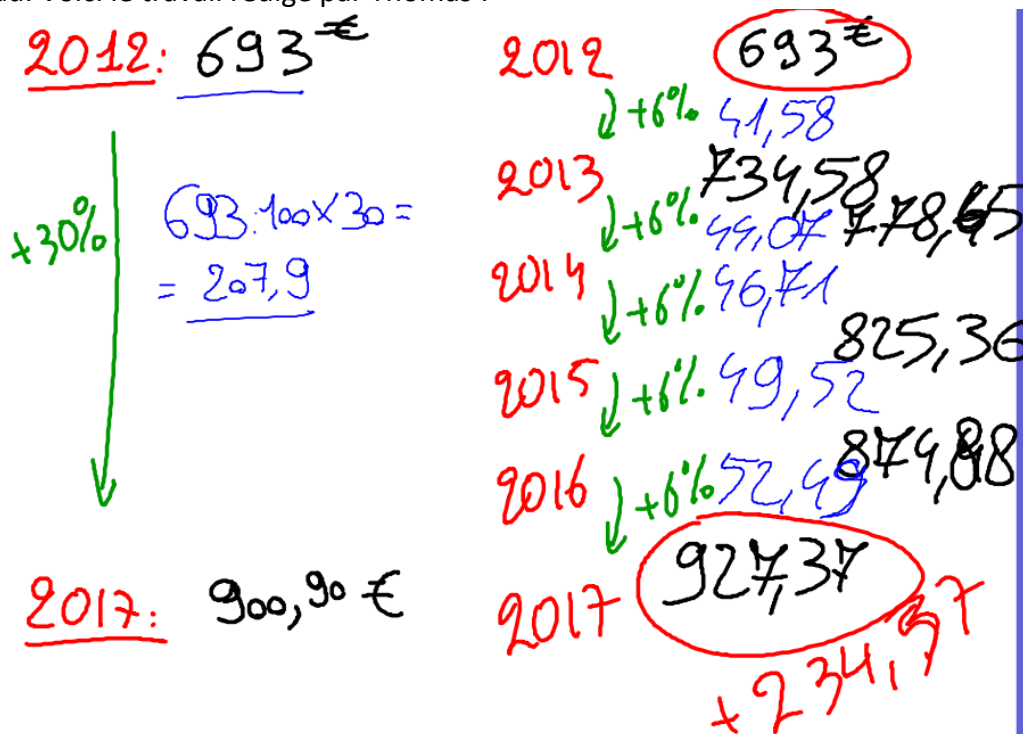 2012: 693 €
+30%
693:100×30=
= 207,9
2017: 900,90 €
2012 693 €
+6% 41,58
2013 734,58
+6% 44,07 778,65
2014
+6% 46,71
825,36
2015
+6% 49,52
874,88
2016
+6% 52,49
2017 927,37
+234,37